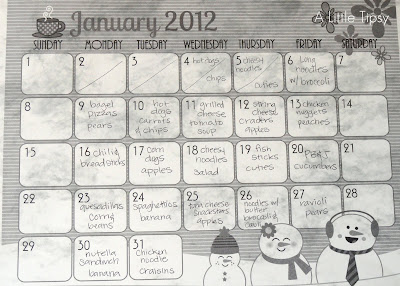 January 2012
A Little Tipsy
SUNDAY MONDAY TUESDAY WEDNESDAY THURSDAY FRIDAY SATURDAY
1
2
3
4 hot dogs
chips
5 cheesy
noodles
cuties
6
noodles
w/ brocoli
7
8
9 bagel
pizzas
pears
10 hot
dogs
carrots
& chips
11 grilled
cheese
tomato
soup
12 string
cheese
crackers
apples
13 chicken
nuggets
peaches
14
15
16 chili &
breadsticks
17 corn
dogs
apples
18 cheesy
noodles
salad
19 fish
sticks
cuties
20 PB&J
cucumbers
21
22
23
quesedillas
corn &
beans
24
spaghettios
banana
25
tuna cheese
apples
26
noodles w/
butter
brocoli &
27
ravioli
pears
28
29
30
nutella
sandwich
banana
31
chicken
noodle
craisins